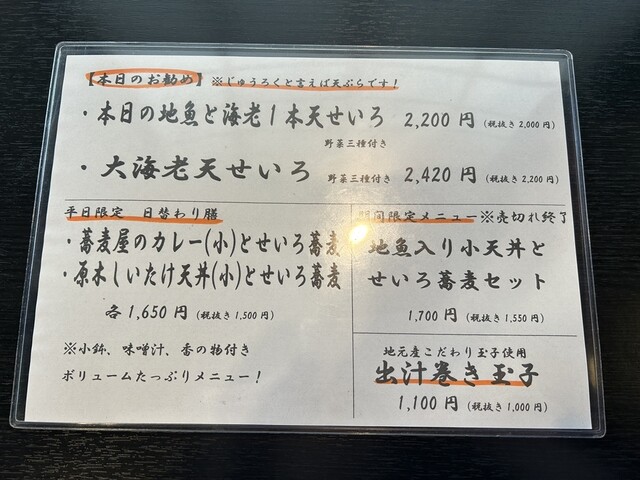 【本日のお勧め】※じゅうろくと言えば天ぷらです!
・本日の地魚と海老1本天せいろ 2,200円(税抜き2,000円)
野菜三種付き
・大海老天せいろ 野菜三種付き 2,420円(税抜き2,200円)
平日限定 日替わり膳
・蕎麦屋のカレー(小)とせいろ蕎麦
・原木しいたけ天丼(小)とせいろ蕎麦
各1,650円(税抜き1,500円)
※小鉢、味噌汁、香の物付き
ボリュームたっぷりメニュー!
期間限定メニュー※売切れ終了
地魚入り小天丼と
せいろ蕎麦セット
1,700円(税抜き1,550円)
地元産こだわり玉子使用
出汁巻き玉子
1,100円(税抜き1,000円)